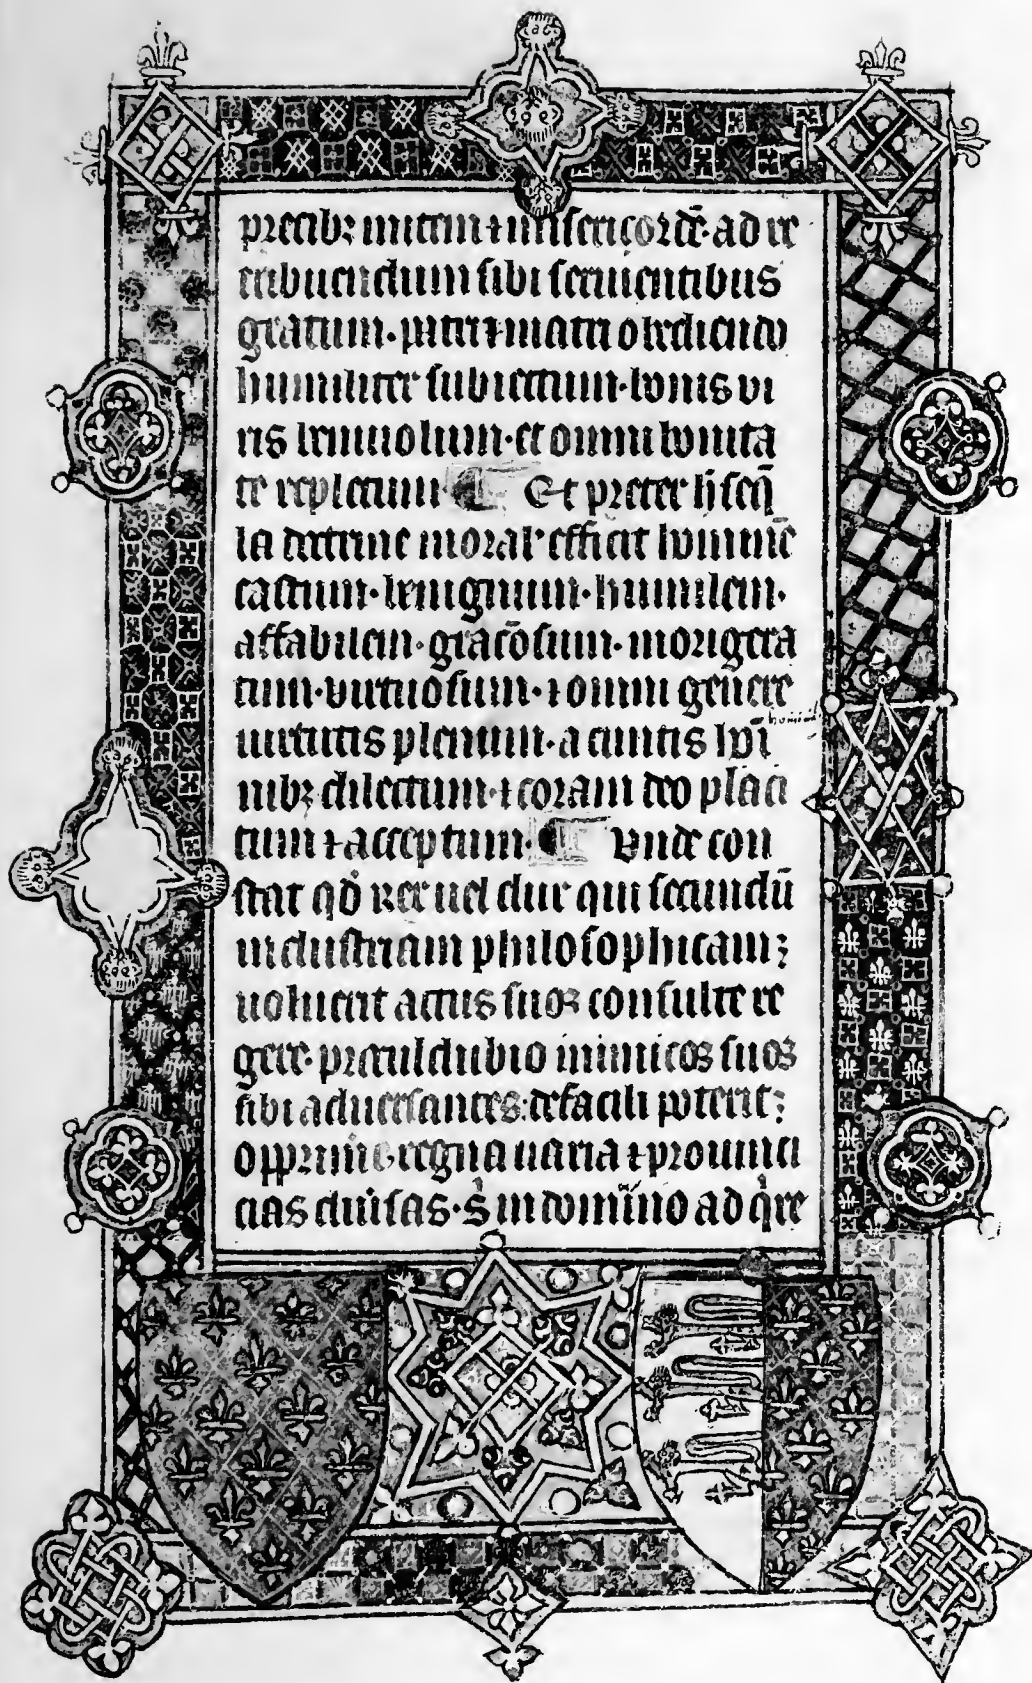 precib; mitem ⁊ misericordē· ad re
tribuendum sibi seruientibus
gratum· patri ⁊ matri obediendo
humiliter subiectum· bonis vi
ris beniuolum· et omni bonita
te repletum· ¶ Et preter h̄ seq̄
la doctrine moral' efficit hominē
castum· benignum· humilem·
affabilem· grac̄osum· morigera
tum· virtuosum· ⁊ omni genere
uirtutis plenum· a cunctis hoī
homini
nib; dilectum· ⁊ coram deo placi
tum ⁊ acceptum· ¶ Vnde con
stat qd̄ rex uel dux qui secundū
industriam philosophicam;
uoluerit actus suos consulte re
gere· procul dubio inimicos suos
sibi aduersantes: de facili poterit;
opprimere regna uaria ⁊ prouinci
cias diuīsas· s; in domīno adq̄re